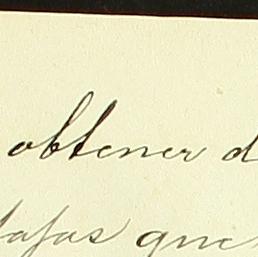 obtener d
tafas que